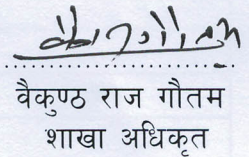 वैकुण्ठ राज गौतम
शाखा अधिकृत